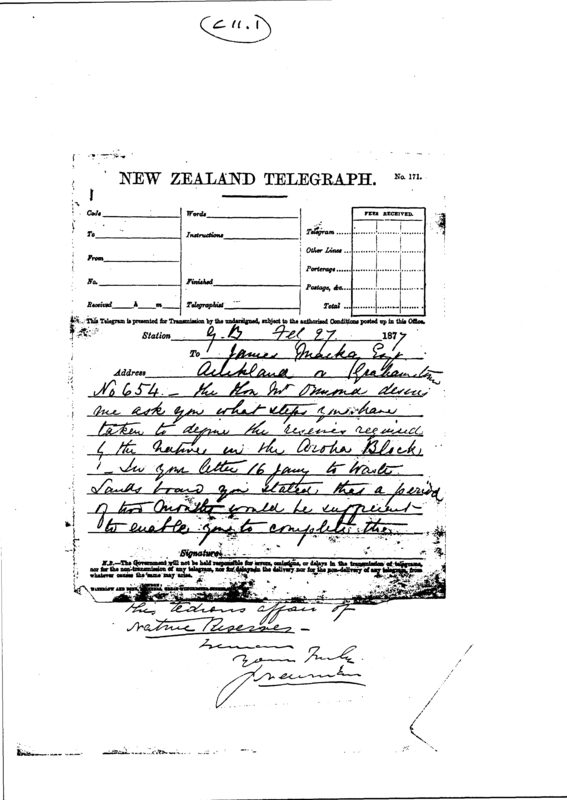 C 11.1
NEW ZEALAND TELEGRAPH. No. 171.
Code Words FEES RECEIVED.
To Instructions Telegram
Other Lines
From Porterage
No. Finished Postage, &c.
Received h m Telegraphist Total
This Telegram is presented for Transmission by the undersigned, subject to the authorised Conditions posted up in this Office.
Station G.B Feb 27 1877
To James Mackay Esq
Address Auckland or Grahamstown
No 654 - the Hon Mr Ormond desires
me ask you what steps you have
taken to define the reserves required
by the Natives in the Aroha Block
- In your letter 16 Jany to Waste
Lands board you stated that a period
of two months would be sufficient
to enable you to complete the
Signature
N.B.—The Government will not be held responsible for errors, omissions, or delays in the transmission of telegrams, nor for the non-transmission of any telegram, nor for delays in the delivery nor for the non-delivery of any telegram, from whatever causes the same may arise.
this tedious affair of
Native Reserves -
Yours Truly